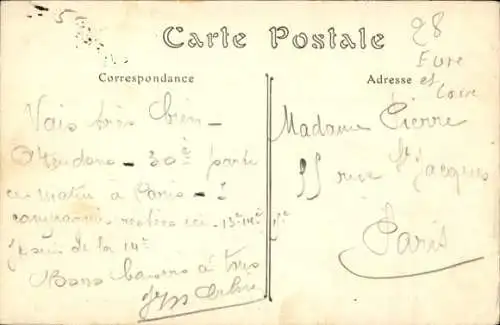 5
Carte Postale
28
Eure
et
Loire
Correspondance
Adresse
Vais très bien -
Attendons - 30e parti
ce matin à Paris -
compagnies restées ici - 13e 14e
Je suis de la 14e
Bons baisers à tous
Madame Pierre
55 rue St Jacques
Paris